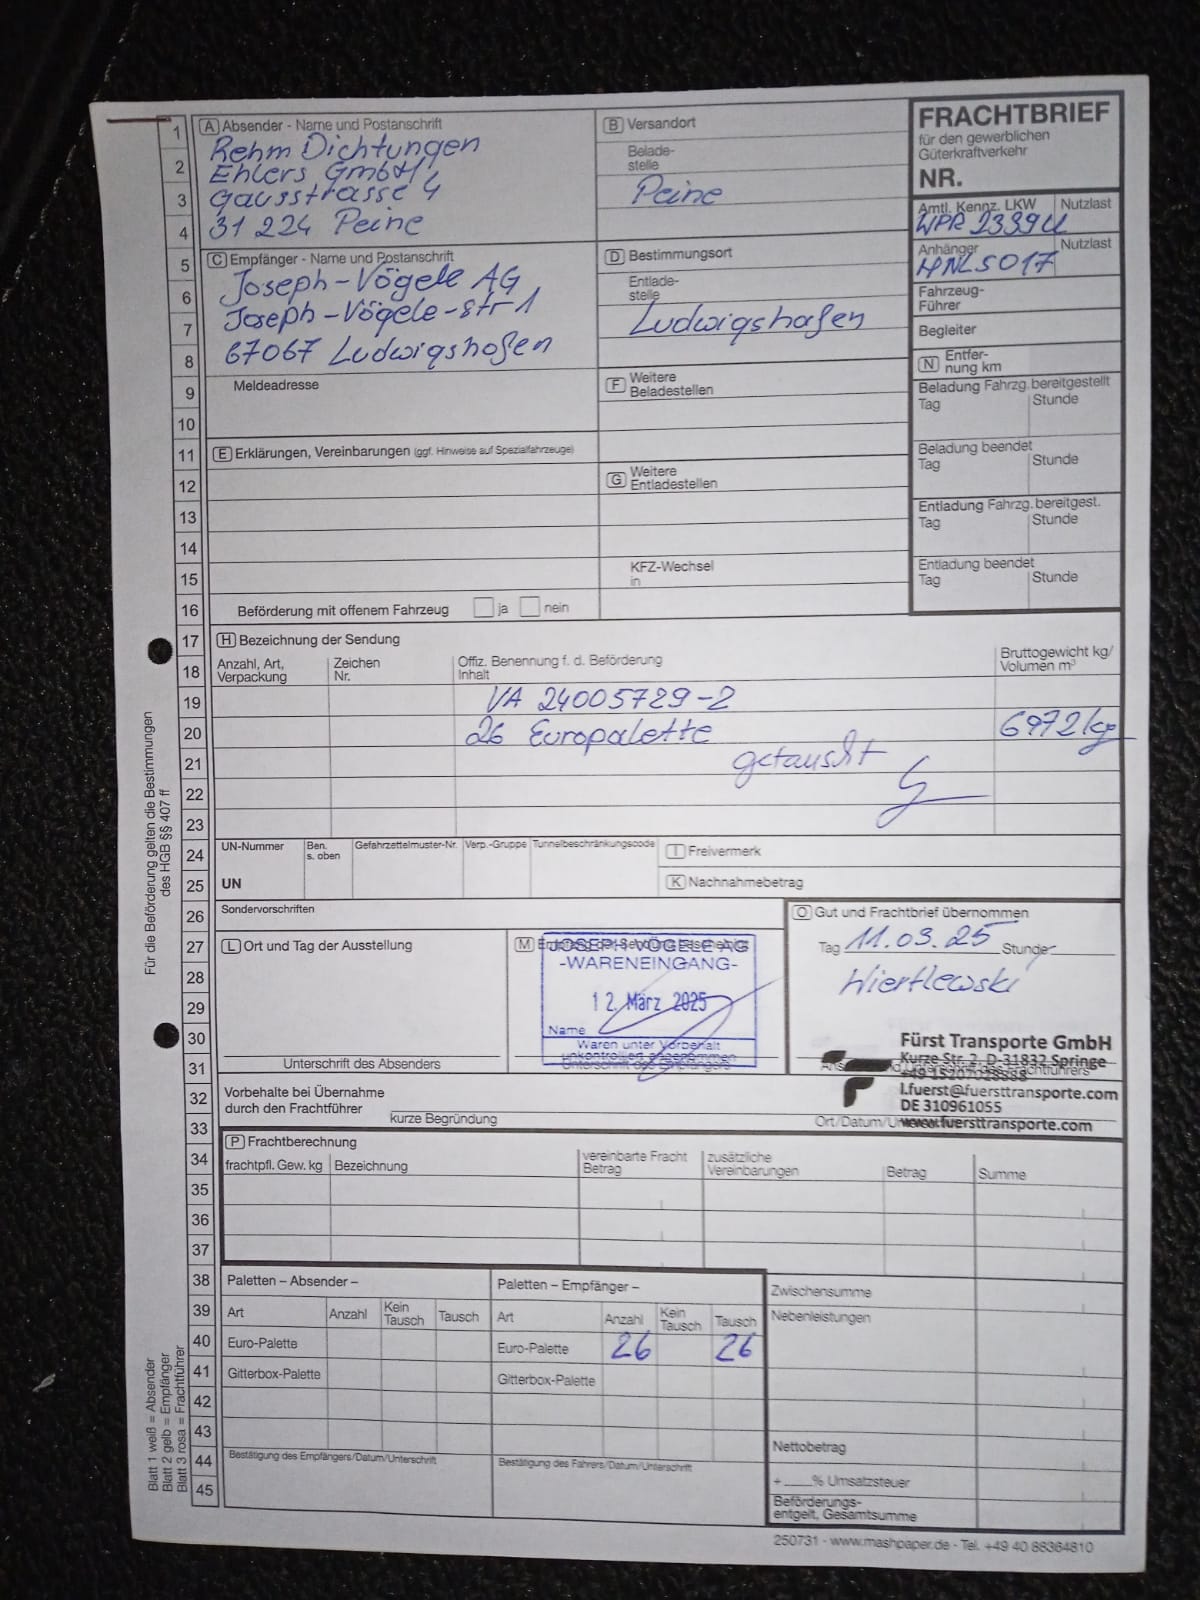 FRACHTBRIEF
für den gewerblichen
Güterkraftverkehr
NR.
A Absender - Name und Postanschrift
Rehm Dichtungen
Ehlers GmbH
Gausstrasse 4
31 224 Peine
B Versandort
Belade-
stelle
Peine
Amtl. Kennz. LKW Nutzlast
WPR 2339U
Anhänger Nutzlast
HNLS017
Fahrzeug-
Führer
Begleiter
C Empfänger - Name und Postanschrift
Joseph-Vögele AG
Joseph-Vögele-str 1
67067 Ludwigshafen
Meldeadresse
D Bestimmungsort
Entlade-
stelle
Ludwigshafen
N Entfer-
nung km
F Weitere
Beladestellen
Beladung Fahrzg. bereitgestellt
Tag Stunde
Beladung beendet
Tag Stunde
E Erklärungen, Vereinbarungen (ggf. Hinweise auf Spezialfahrzeuge)
G Weitere
Entladestellen
Entladung Fahrzg. bereitgest.
Tag Stunde
Entladung beendet
Tag Stunde
KFZ-Wechsel
in
Beförderung mit offenem Fahrzeug ja nein
H Bezeichnung der Sendung
Anzahl, Art,
Verpackung
Zeichen
Nr.
Offiz. Benennung f. d. Beförderung
Inhalt
Bruttogewicht kg/
Volumen m³
VA 24005729-2
26 Europalette 6972 kg
getauscht
UN-Nummer
Ben.
s. oben
Gefahrzettelmuster-Nr. Verp.-Gruppe Tunnelbeschränkungscode
UN
I Freivermerk
K Nachnahmebetrag
Sondervorschriften
L Ort und Tag der Ausstellung
Unterschrift des Absenders
M
JOSEPH VÖGELE AG
-WARENEINGANG-
12. März 2025
Name
Waren unter Vorbehalt
unkontrolliert angenommen
Unterschrift des Empfängers
O Gut und Frachtbrief übernommen
Tag 11.03.25 Stunde
Fürst Transporte GmbH
Kurze Str. 2, D-31832 Springe
l.fuerst@fuersttransporte.com
DE 310961055
www.fuersttransporte.com
Vorbehalte bei Übernahme
durch den Frachtführer
kurze Begründung
Ort/Datum/
P Frachtberechnung
frachtpfl. Gew. kg Bezeichnung
vereinbarte Fracht
Betrag
zusätzliche
Vereinbarungen
Betrag Summe
Paletten – Absender –
Art Anzahl Kein
Tausch Tausch
Euro-Palette
Gitterbox-Palette
Bestätigung des Empfängers/Datum/Unterschrift
Paletten – Empfänger –
Art Anzahl Kein
Tausch Tausch
Euro-Palette 26 26
Gitterbox-Palette
Bestätigung des Fahrers/Datum/Unterschrift
Zwischensumme
Nebenleistungen
Nettobetrag
+ ____% Umsatzsteuer
Beförderungs-
entgelt, Gesamtsumme
250731 - www.mashpaper.de - Tel. +49 40 88364810
Für die Beförderung gelten die Bestimmungen
des HGB §§ 407 ff
Blatt 1 weiß = Absender
Blatt 2 gelb = Empfänger
Blatt 3 rosa = Frachtführer
1
2
3
4
5
6
7
8
9
10
11
12
13
14
15
16
17
18
19
20
21
22
23
24
25
26
27
28
29
30
31
32
33
34
35
36
37
38
39
40
41
42
43
44
45